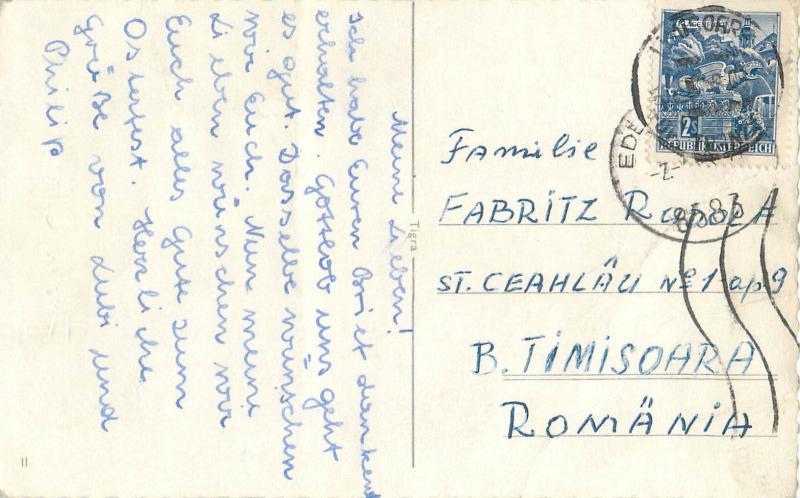 Meine Lieben!
Ich habe Euren Brief dankend
erhalten. Gottlob uns geht
es gut. Dasselbe wünschen
wir Euch. Nun meine
Lieben wünschen wir
Euch alles Gute zum
Osterfest. Herzliche
Grüße von Lubi und
Philip
Tigra
II
2s
REPUBLIK ÖSTERREICH
8583
Familie
FABRITZ
ST. CEAHLĂU No 1 ap 9
B. TIMIȘOARA
ROMÂNIA